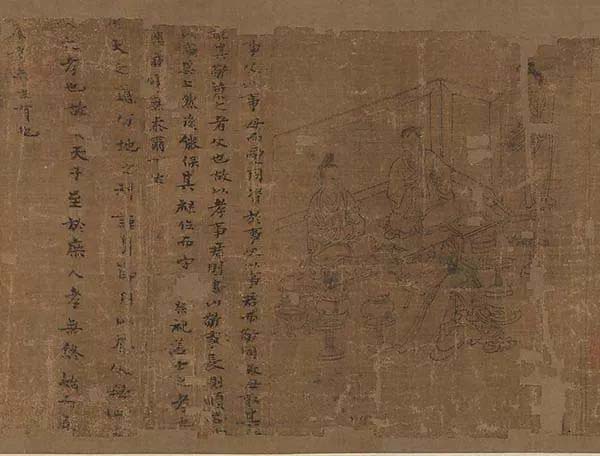 事父以事母而愛同資於事父以事君而敬同故母取其
其敬兼之者父也故以孝事君則忠以敬事長則順
其上然後能保其祿位而守祭祀蓋士之孝也
夜寐無忝爾所
天之道分地之利謹身節用以養父母此
孝也故天子至於庶人孝無終始而患
者未之有也